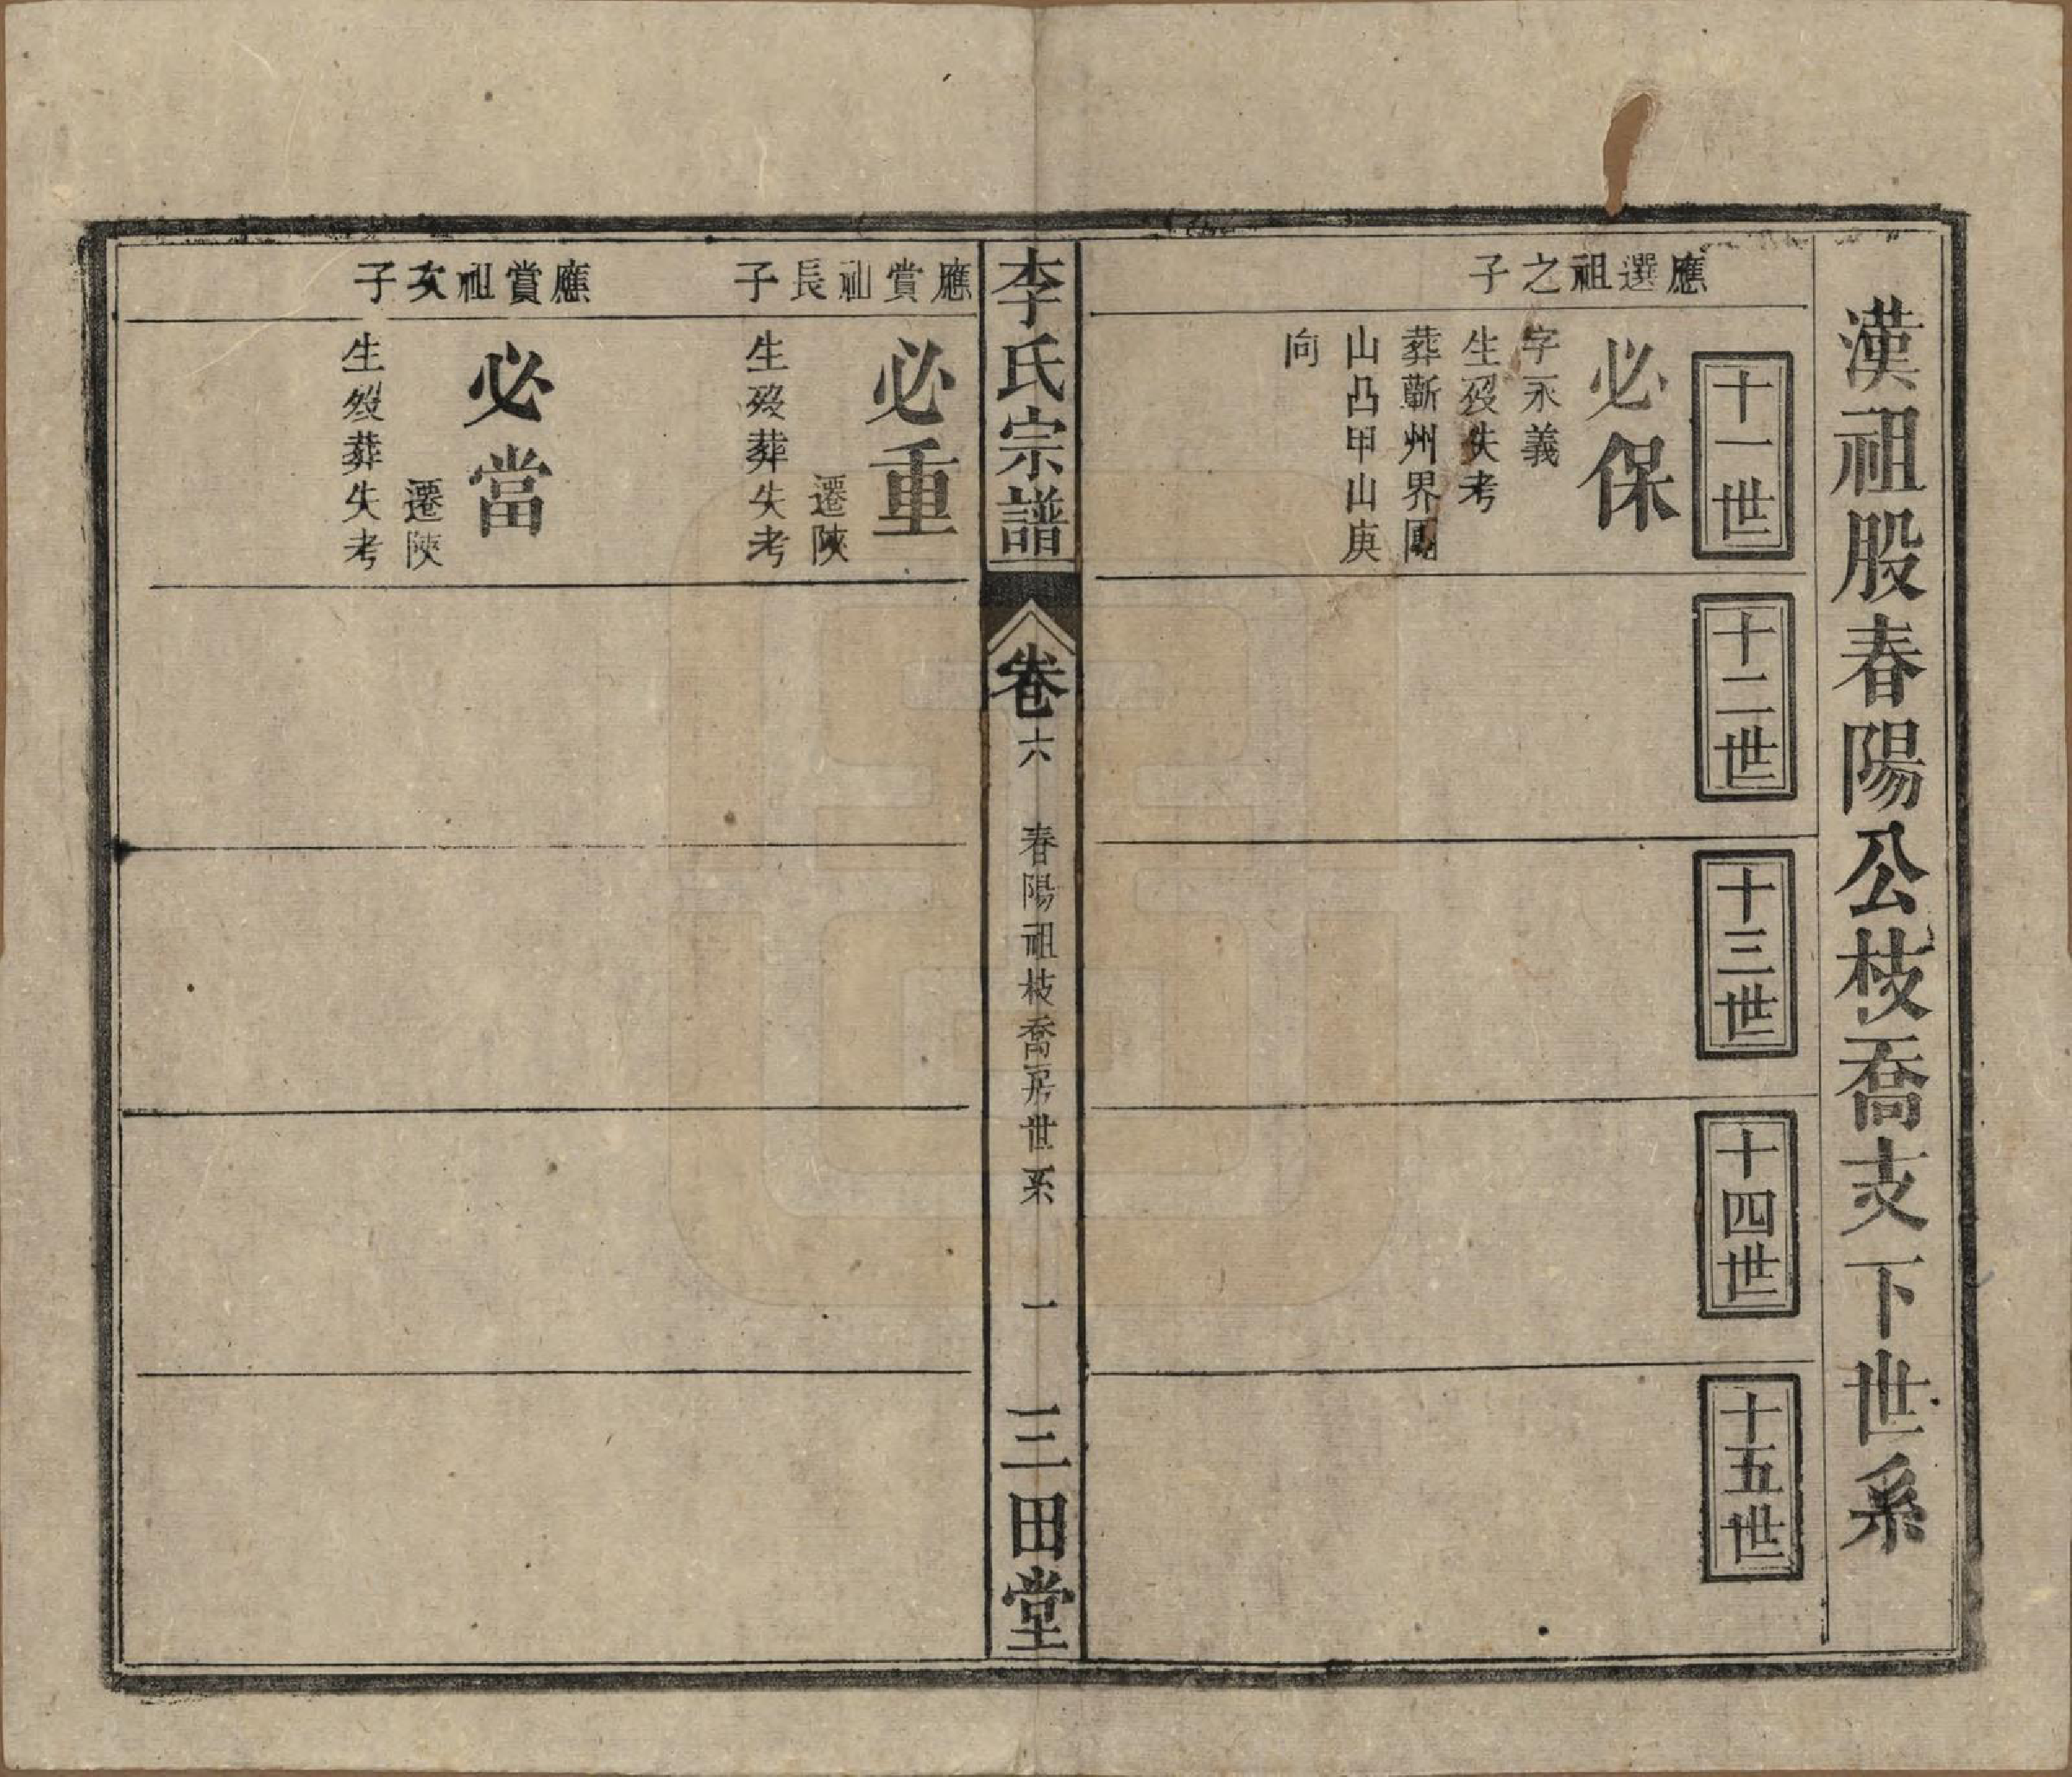 漢祖股春陽公枝喬支下世系
十一世
十二世
十三世
十四世
十五世
應選祖之子
必保
字永義
生歿失考
葬蘄州界鳳
山凸甲山庚
向
李氏宗譜
卷六
春陽祖枝喬房世系
一
三田堂
應賞祖長子
必重
遷陝
生歿葬失考
應賞祖次子
必當
遷陝
生歿葬失考